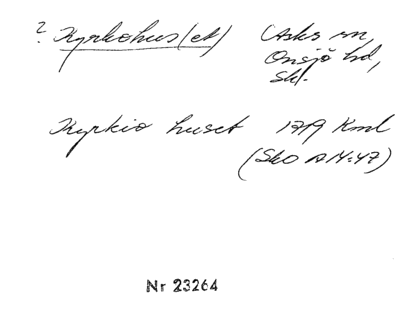 ? Kyrkohus(et) Asks sn,
Onsjö hd,
Sk.
Kyrkio huset 1719 Kml
(Sko A N:47)
Nr 23264